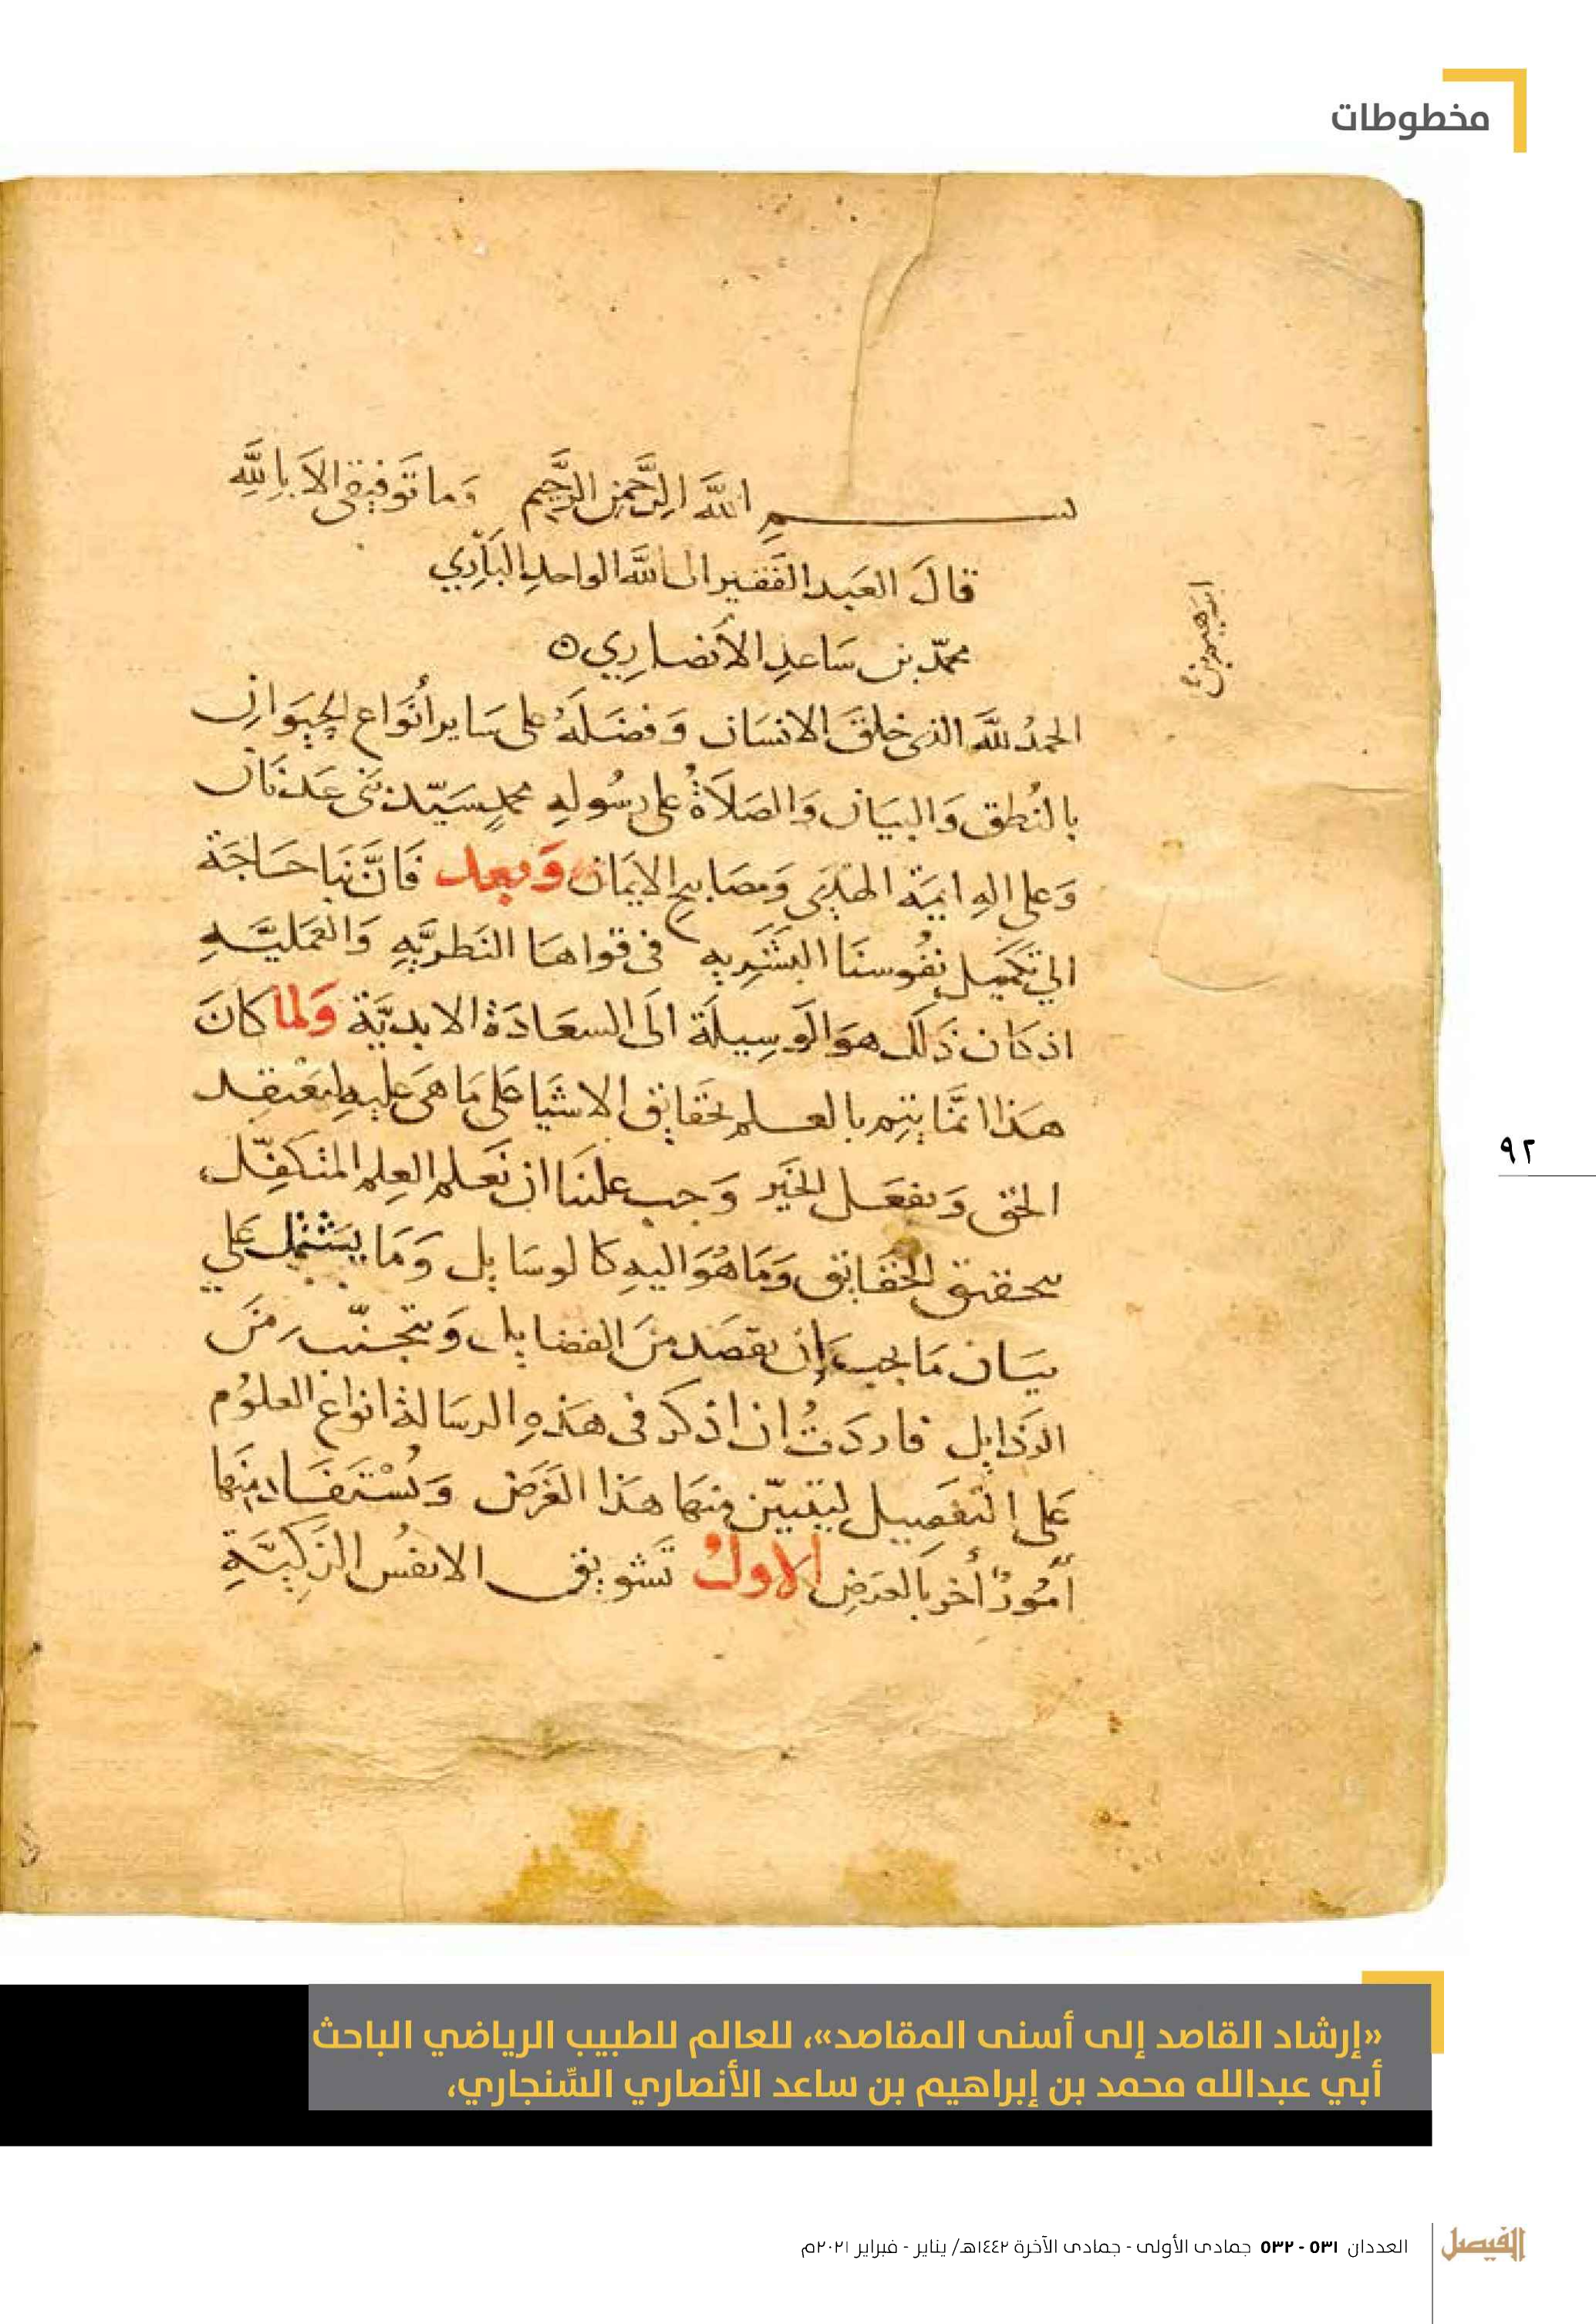 مخطوطات
بسم الله الرَّحمن الرَّحيم وَما تَوفيقى الاَ باِللَّهِ
قالَ العَبد الفَقير الى اللَّه الواحدِ البَارِي
محمّد بن سَاعدِ الأنصاري
ابرهيم بن
الحمدُ للَّه الذى خلقَ الانسَان وَفضَلَهُ على سَاير أنْوَاع الحيَوان
بالنُطق وَالبيَان وَالصَلاَةُ على رسُولهِ محمدٍ سَيّد بَنى عَدنَان
وَعلى الهِ ايمَة الهدَى وَمصَابيح الايمَان وَبعد فَانَّ بنَا حَاجَة
الي تكميل نفُوسنَا البشَرِيه فى قواهَا النَظريَّهِ وَالعَمَليَّهِ
اذ كَان ذَلكَ هوَ الوَسِيلَة الَى السعَادَة الابديَّة وَلما كانَ
هَذا انمَّا يَتِم بالعلم بحَقايق الاشيَا عَلى مَا هىَ عليهِ ليعْتقد
الحَق وَيفعَل الخَيْر وَجب علَينَا ان نَعلم العِلم المتكفِّل
بتحقيق الحَقَايق وَمَا هُوَ اليهِ كَالوسَايل وَمَا يشتمل عَلي
بيَان مَا يجب ان يقصَد منَ الفضايل وَيتجنّب مِنَ
الرذَايل فاردَتُ ان اذكر فى هَذهِ الرسَالة انوَاع العلوُم
عَلى التفصِيل ليَتبيّن منهَا هَذا الغَرَض وَيُسْتَفَاد منهَا
أمُورٌ أُخر بالعرَضِ الاولُ تَشويق الانفُس الزَكيَّةِ
٩٢
«إرشاد القاصد إلى أسنى المقاصد»، للعالم للطبيب الرياضي الباحث
أبي عبدالله محمد بن إبراهيم بن ساعد الأنصاري السِّنجاري،
الفيصل
العددان ٥٣١ - ٥٣٢ جمادى الأولى - جمادى الآخرة ١٤٤٢هـ/ يناير - فبراير ٢٠٢١م